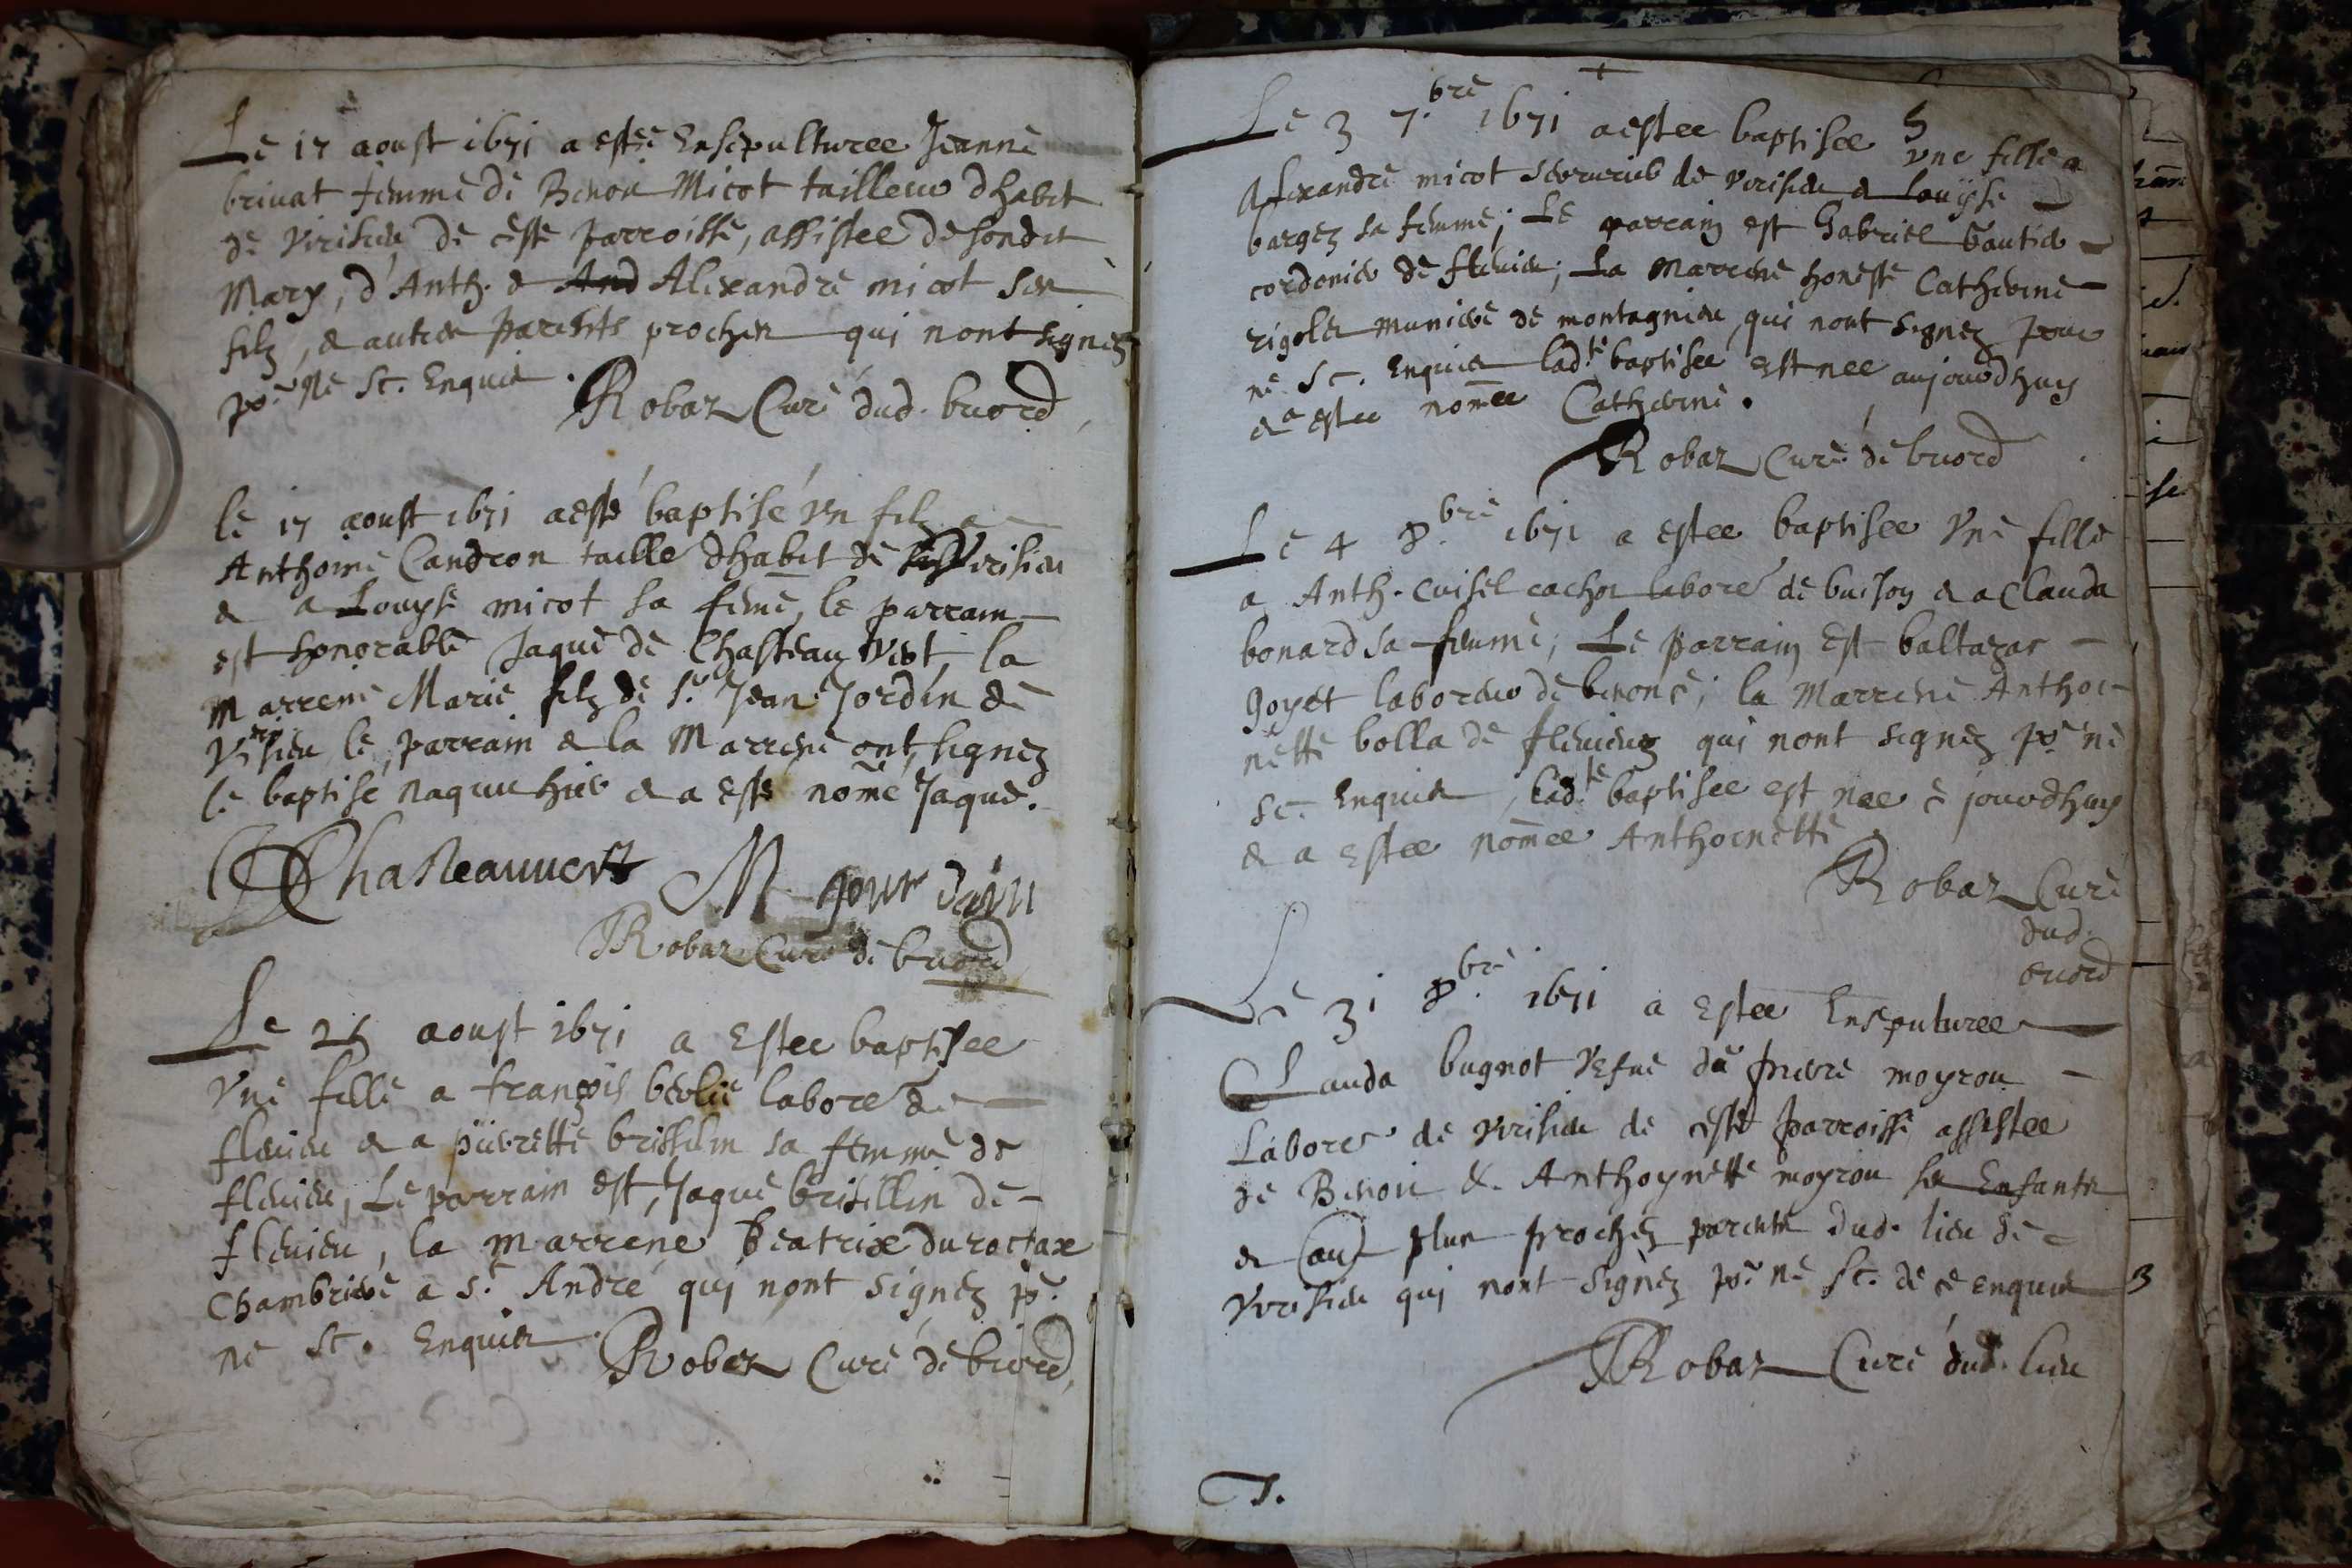 Le 17 aoust 1671 a estée Ensepulturee Jeanne
brivat femme de Benoit Micot tailleur dhabit
de Virisieu de ceste parroisse, assistee de sondit
Mary, d'Anth. & And Alexandre micot ses
filz, & autres parents proches qui nont signez
por ne sc. Enquis.
Robaz Curé dud. buord
le 17 aoust 1671 a esté baptisé vn filz a
Anthoine Candron taille dhabit de Virisieu
& a Louyse micot sa feme, le parrain
est honorable Jaque de Chasteau Vert, la
Marrene Marie filz de Sr. Jean Jordin de
Virisieu le parrain & la Marrene ont signez
le baptisé naquit hier & a esté nomé Jaque.
Chasteauvert M Jourdain
Robaz Curé de buord
Le 25 aoust 1671 a Estee baptisee
Vne fille a françois berlie labore de
flevieu & a pierrette brissilin sa femme de
flevieu, Le parrain est, Jaque brisillin de
flevieu, la marrene Beatrix durochax
Chambriere a St. André qui nont signez por.
ne sc. Enquis. Robaz Curé de buord,
Le 3 7.bre 1671 a estee baptisee vne fille a
Alexandre micot serrurier de virisieu & Louyse
bargez sa femme; Le parrain est Gabriel Gautier
cordonier de flevieu; La Marrene honeste Catherine
rigolet muniere de montagnieu qui nont signez pour
ne sc. Enquis ladte. baptisee est nee aujourdhuy
& a estee nomee Catherine.
Robaz Curé de buord
Le 4 8.bre 1671 a estee baptisee Vne fille
a Anth. cuisel cachot labore de buison & a Clauda
bonard sa femme; Le parrain Est baltazar
goyet laboreur de benonce; la Marrene Anthoi-
nette bolla de flevieu qui nont signez por ne
sc. Enquis, ladte. baptisee est nee ce jourdhuy
& a Estee nomee Anthoinette
Robaz Curé
dud.
buord
Le 31 8.bre 1671 a Estee Ensepulturee
Clauda bugnot vefue de pierre moyrou
Labore de Virisieu de ceste parroisse assistee
de Benoit & Anthoynette moyrou ses Enfants
& aut plus prochez parents dud. lieu de
Virisieu qui nont signez por ne sc. de ce enquis
Robaz Curé dud. lieu